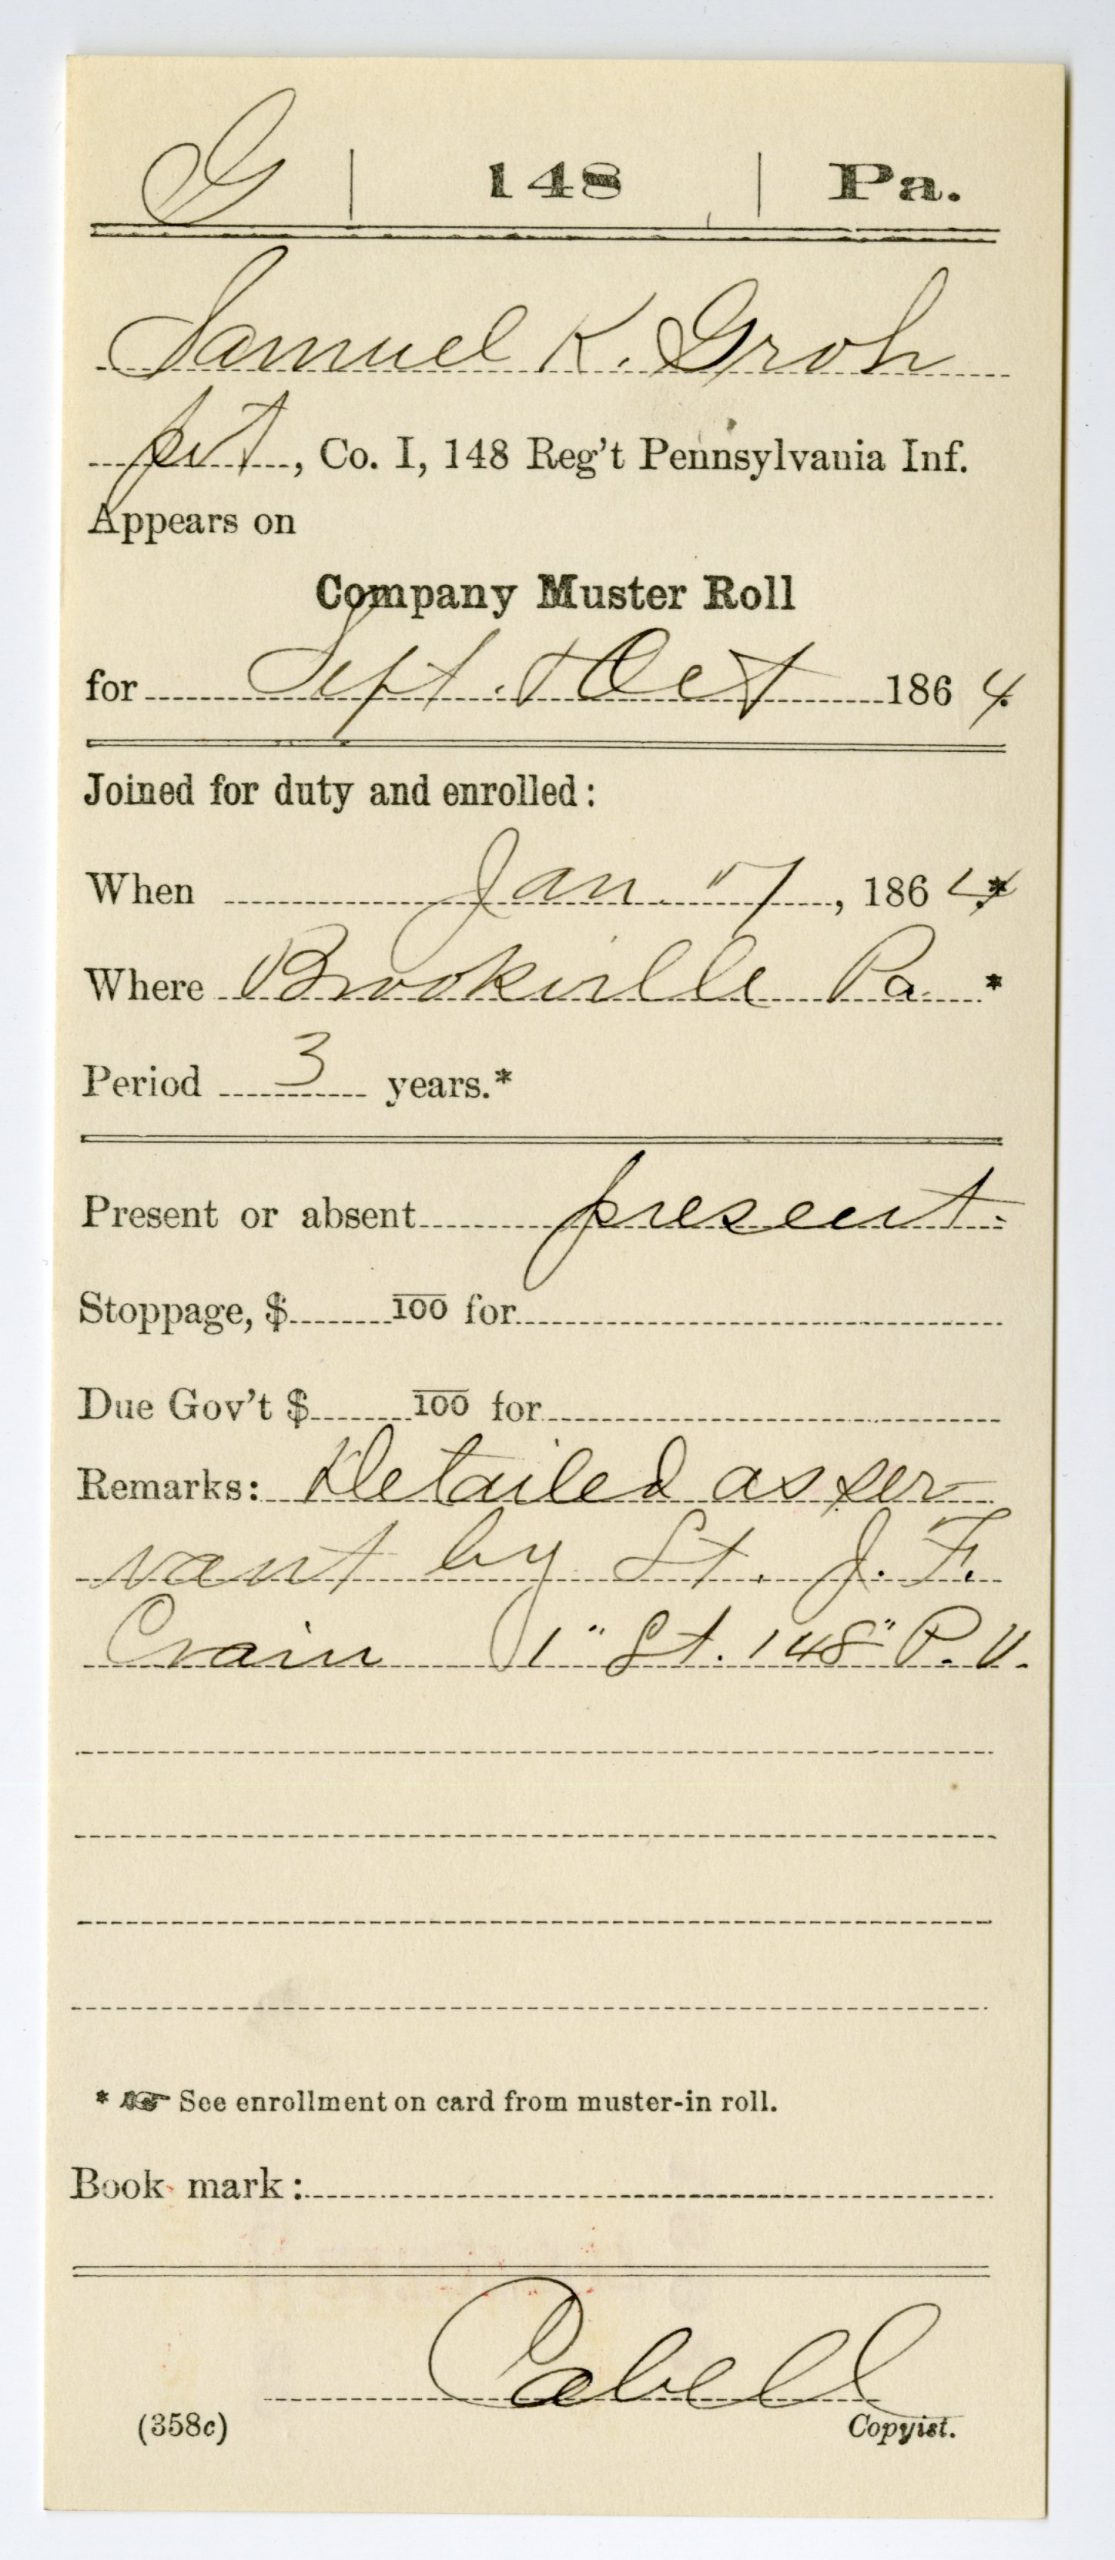 G | 148 | Pa.
Samuel K. Groh
pvt, Co. I, 148 Reg't Pennsylvania Inf.
Appears on
Company Muster Roll
for Sept. & Oct 1864.
Joined for duty and enrolled:
When Jan. 17, 1864.*
Where Brookville Pa. *
Period 3 years.*
Present or absent present.
Stoppage, $ 100 for
Due Gov't $ 100 for
Remarks: Detailed as ser-
vant by Lt. J. F.
Crain 1" Lt. 148" P.V.
* ☞ See enrollment on card from muster-in roll.
Book mark:
Cabell
(358c) Copyist.